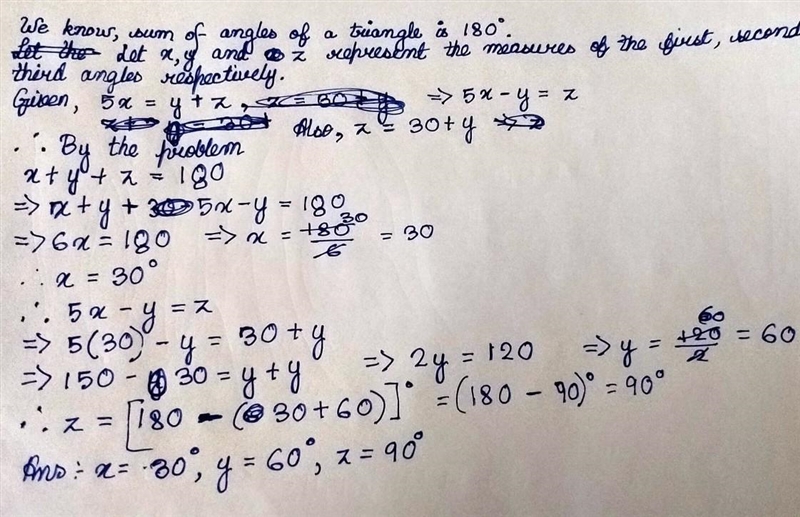 We know, sum of angles of a triangle is 180°.
Let x, y and z represent the measures of the first, second
third angles respectively.
Given, 5x = y + z, => 5x - y = z
Also, z = 30 + y
∴ By the problem
x + y + z = 180
=> x + y + 5x - y = 180
=> 6x = 180 => x = 180/6 30 = 30
∴ x = 30°
∴ 5x - y = z
=> 5(30) - y = 30 + y
=> 150 - 30 = y + y => 2y = 120 => y = 120/2 60 = 60
∴ z = [180 - (30 + 60)]° = (180 - 90)° = 90°
Ans :- x = 30°, y = 60°, z = 90°